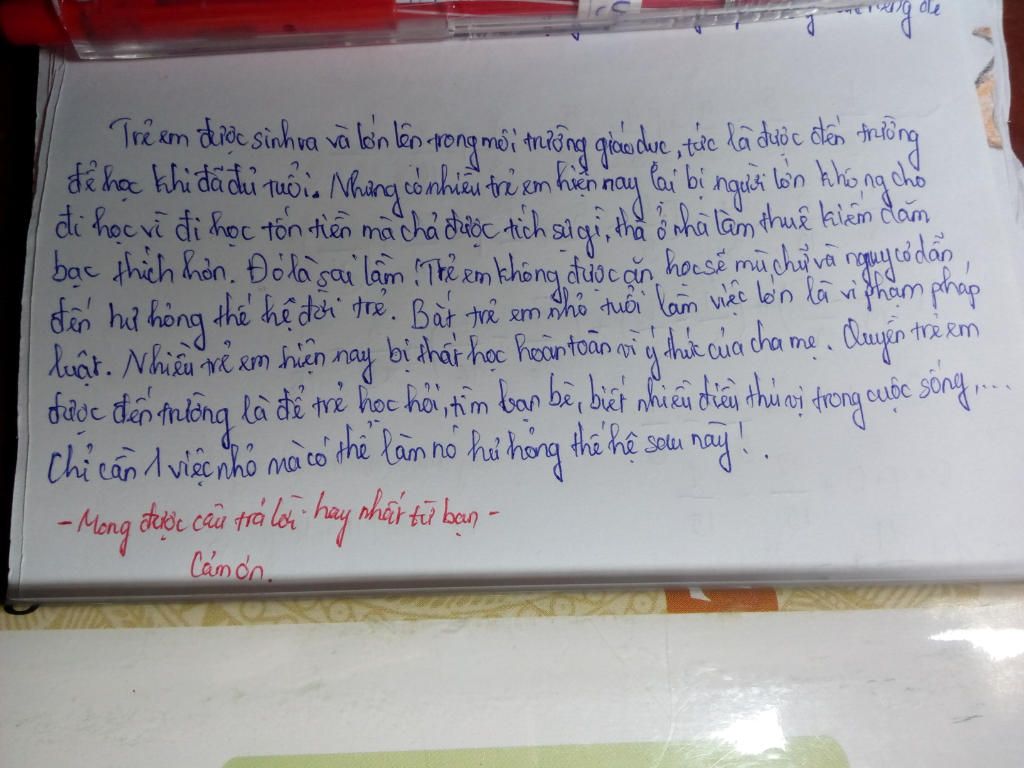 để
Trẻ em được sinh ra và lớn lên trong môi trường giáo dục, tức là được đến trường
để học khi đã đủ tuổi. Nhưng có nhiều trẻ em hiện nay lại bị người lớn không cho
đi học vì đi học tốn tiền mà chả được tích sự gì, thà ở nhà làm thuê kiếm dăm
bạc thích hơn. Đó là sai lầm! Trẻ em không được ăn học sẽ mù chữ và nguy cơ dẫn
đến hư hỏng thế hệ đời trẻ. Bắt trẻ em nhỏ tuổi làm việc lớn là vi phạm pháp
luật. Nhiều trẻ em hiện nay bị thất học hoàn toàn vì ý thức của cha mẹ. Quyền trẻ em
được đến trường là để trẻ học hỏi, tìm bạn bè, biết nhiều điều thú vị trong cuộc sống,...
Chỉ cần 1 việc nhỏ mà có thể làm nó hư hỏng thế hệ sau này!
- Mong được câu trả lời hay nhất từ bạn -
Cảm ơn.